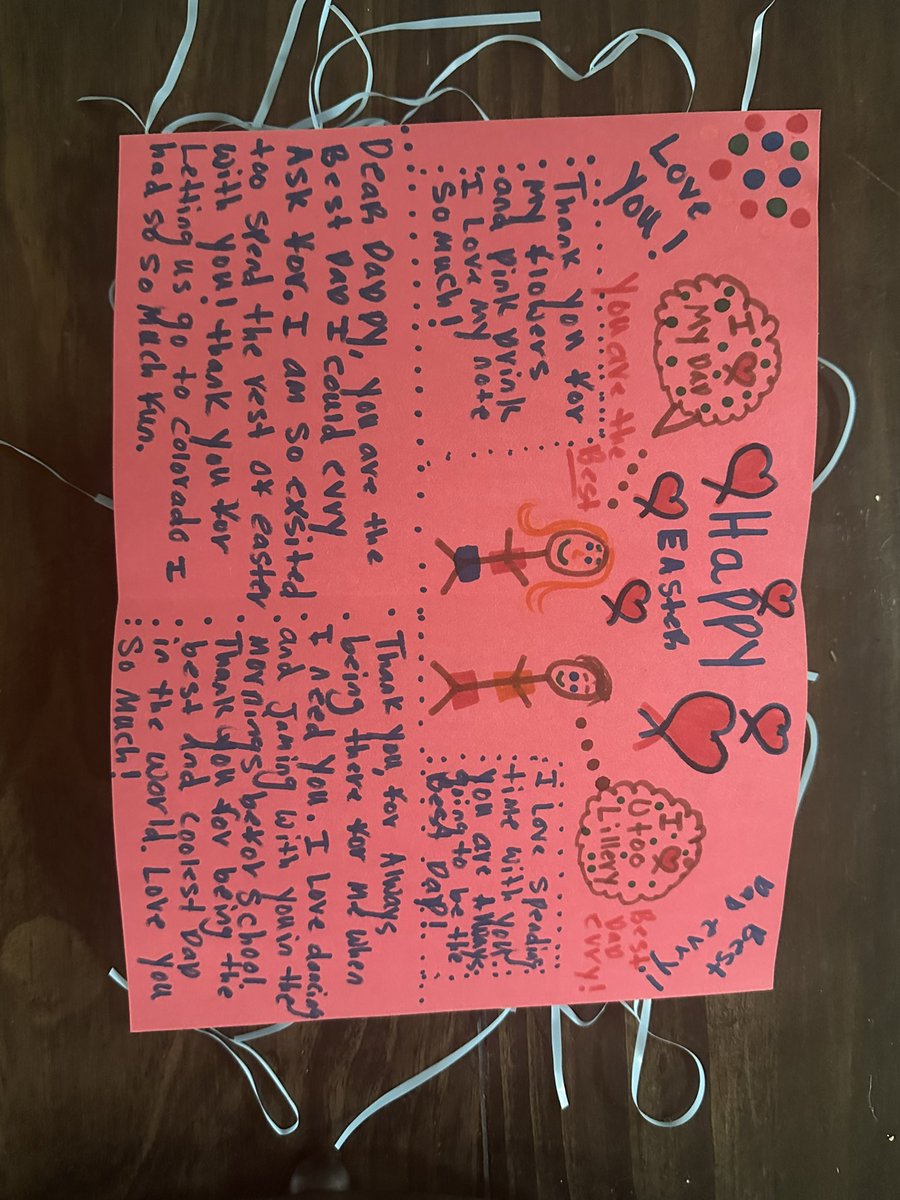 Love
You!
I ♥
My DaD
Happy
EASter
I ♥
U too
Lillery
Best
DaD evvy!
You are the Best
Best
DaD
evvy!
Thank You for
my flowers
and pink Drink
I Love my note
So much!
I Love spending
time with You!
You are always
going to be the
Best DaD!
Dear DaDDy, You are the
Best DaD I could evvy
Ask for. I am so exsited
too send the rest of easter
with you! thank you for
Letting us go to colorado I
had so so Much fun.
Thank You, for Always
being there for me when
I need you. I Love dancing
and Jaming with you in the
mornings befor School!
Thank You for being the
best And coolest DaD
in the world. Love You
So Much!